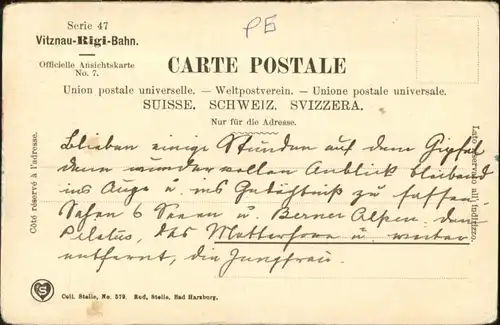 Serie 47
PE
Vitznau-Rigi-Bahn.
Officielle Ansichtskarte
No. 7.
CARTE POSTALE
Union postale universelle. — Weltpostverein. — Unione postale universale.
SUISSE. SCHWEIZ. SVIZZERA.
Nur für die Adresse.
Côté réservé à l'adresse.
Lato riservato all'indirizzo.
Blieben einige Stunden auf dem Gipfel
denn wundervollen Anblick bleibend
ins Auge u. ins Gedächtniß zu fassen
Sahen 6 Seeen u. Berner Alpen, den
Pilatus, das Matterhorn u. weiter
entfernt, die Jungfrau.
S
Coll. Stalle, No. 579. Rud. Stelle, Bad Harzburg.